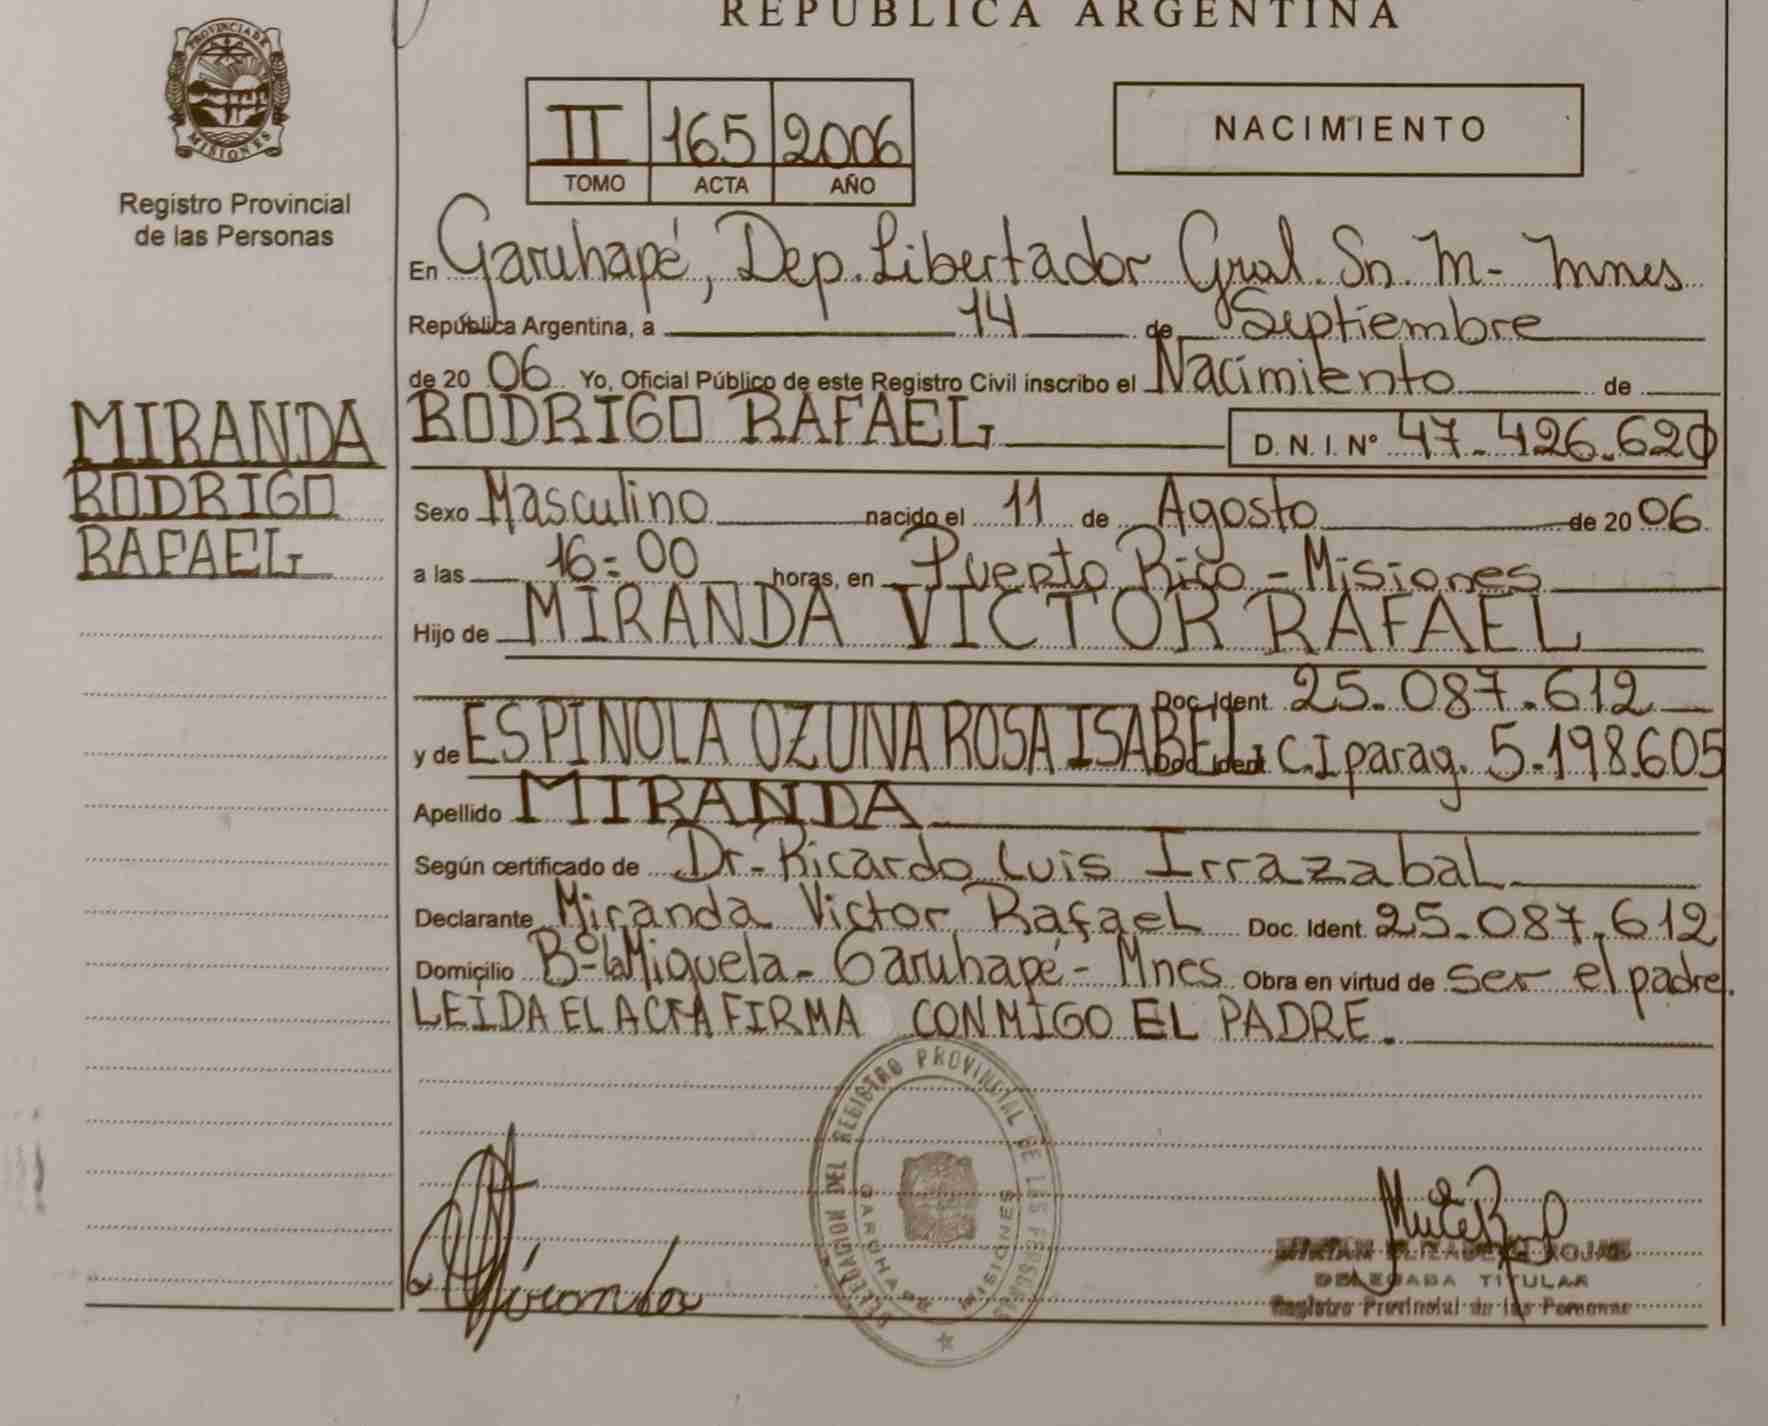 REPUBLICA ARGENTINA
PROVINCIA DE
MISIONES
Registro Provincial
de las Personas
II 165 2006
TOMO ACTA AÑO
NACIMIENTO
En Garuhapé, Dep. Libertador Gral. Sn. M- Mnes
República Argentina, a 14 de Septiembre
de 20 06 Yo, Oficial Público de este Registro Civil inscribo el Nacimiento de
MIRANDA
RODRIGO
RAFAEL
RODRIGO RAFAEL D. N. I. Nº 47-426.620
Sexo Masculino nacido el 11 de Agosto de 20 06
a las 16=00 horas, en Puerto Rico - Misiones
Hijo de MIRANDA VICTOR RAFAEL
Doc. Ident 25.087.612
y de ESPINOLA OZUNA ROSA ISABEL Doc. Ident C.I parag. 5.198.605
Apellido MIRANDA
Según certificado de Dr. Ricardo Luis Irrazabal
Declarante Miranda Victor Rafael Doc. Ident. 25.087.612
Domicilio Bº la Miquela - Garuhapé - Mnes Obra en virtud de ser el padre.
LEIDA EL ACTA FIRMA CONMIGO EL PADRE.
DELEGACION DEL REGISTRO PROVINCIAL DE LAS PERSONAS
GARUHAPE MISIONES
Miranda
MIRIAN ELIZABETH ROJAS
DELEGADA TITULAR
Registro Provincial de las Personas